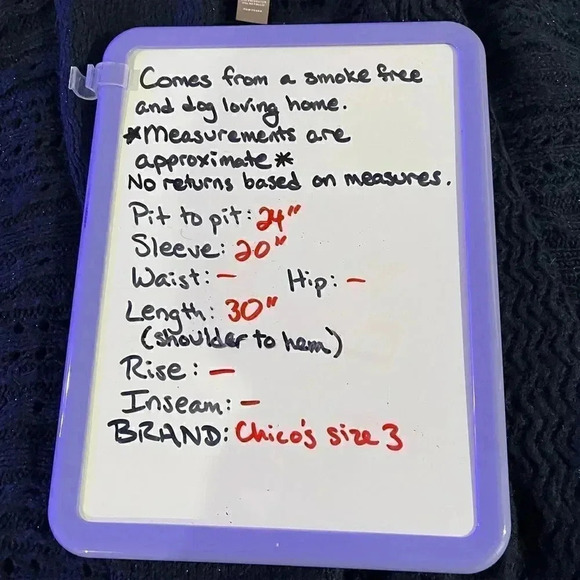 Comes from a smoke free
and dog loving home.
*Measurements are
approximate*
No returns based on measures.
Pit to pit: 24"
Sleeve: 20"
Waist: - Hip: -
Length: 30"
(shoulder to hem)
Rise: -
Inseam: -
BRAND: Chico's size 3